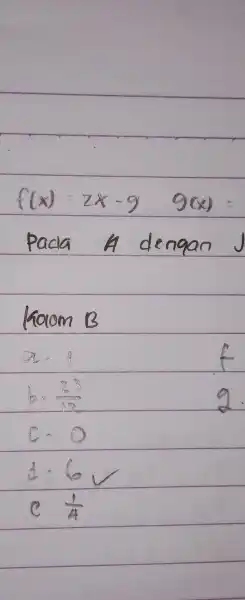 f(x) = 2x - 9   g(x) =
Pada A dengan J
Kolom B
a. 1   f
b. 23/12   g.
c. 0
d. 6 ✓
e 1/4